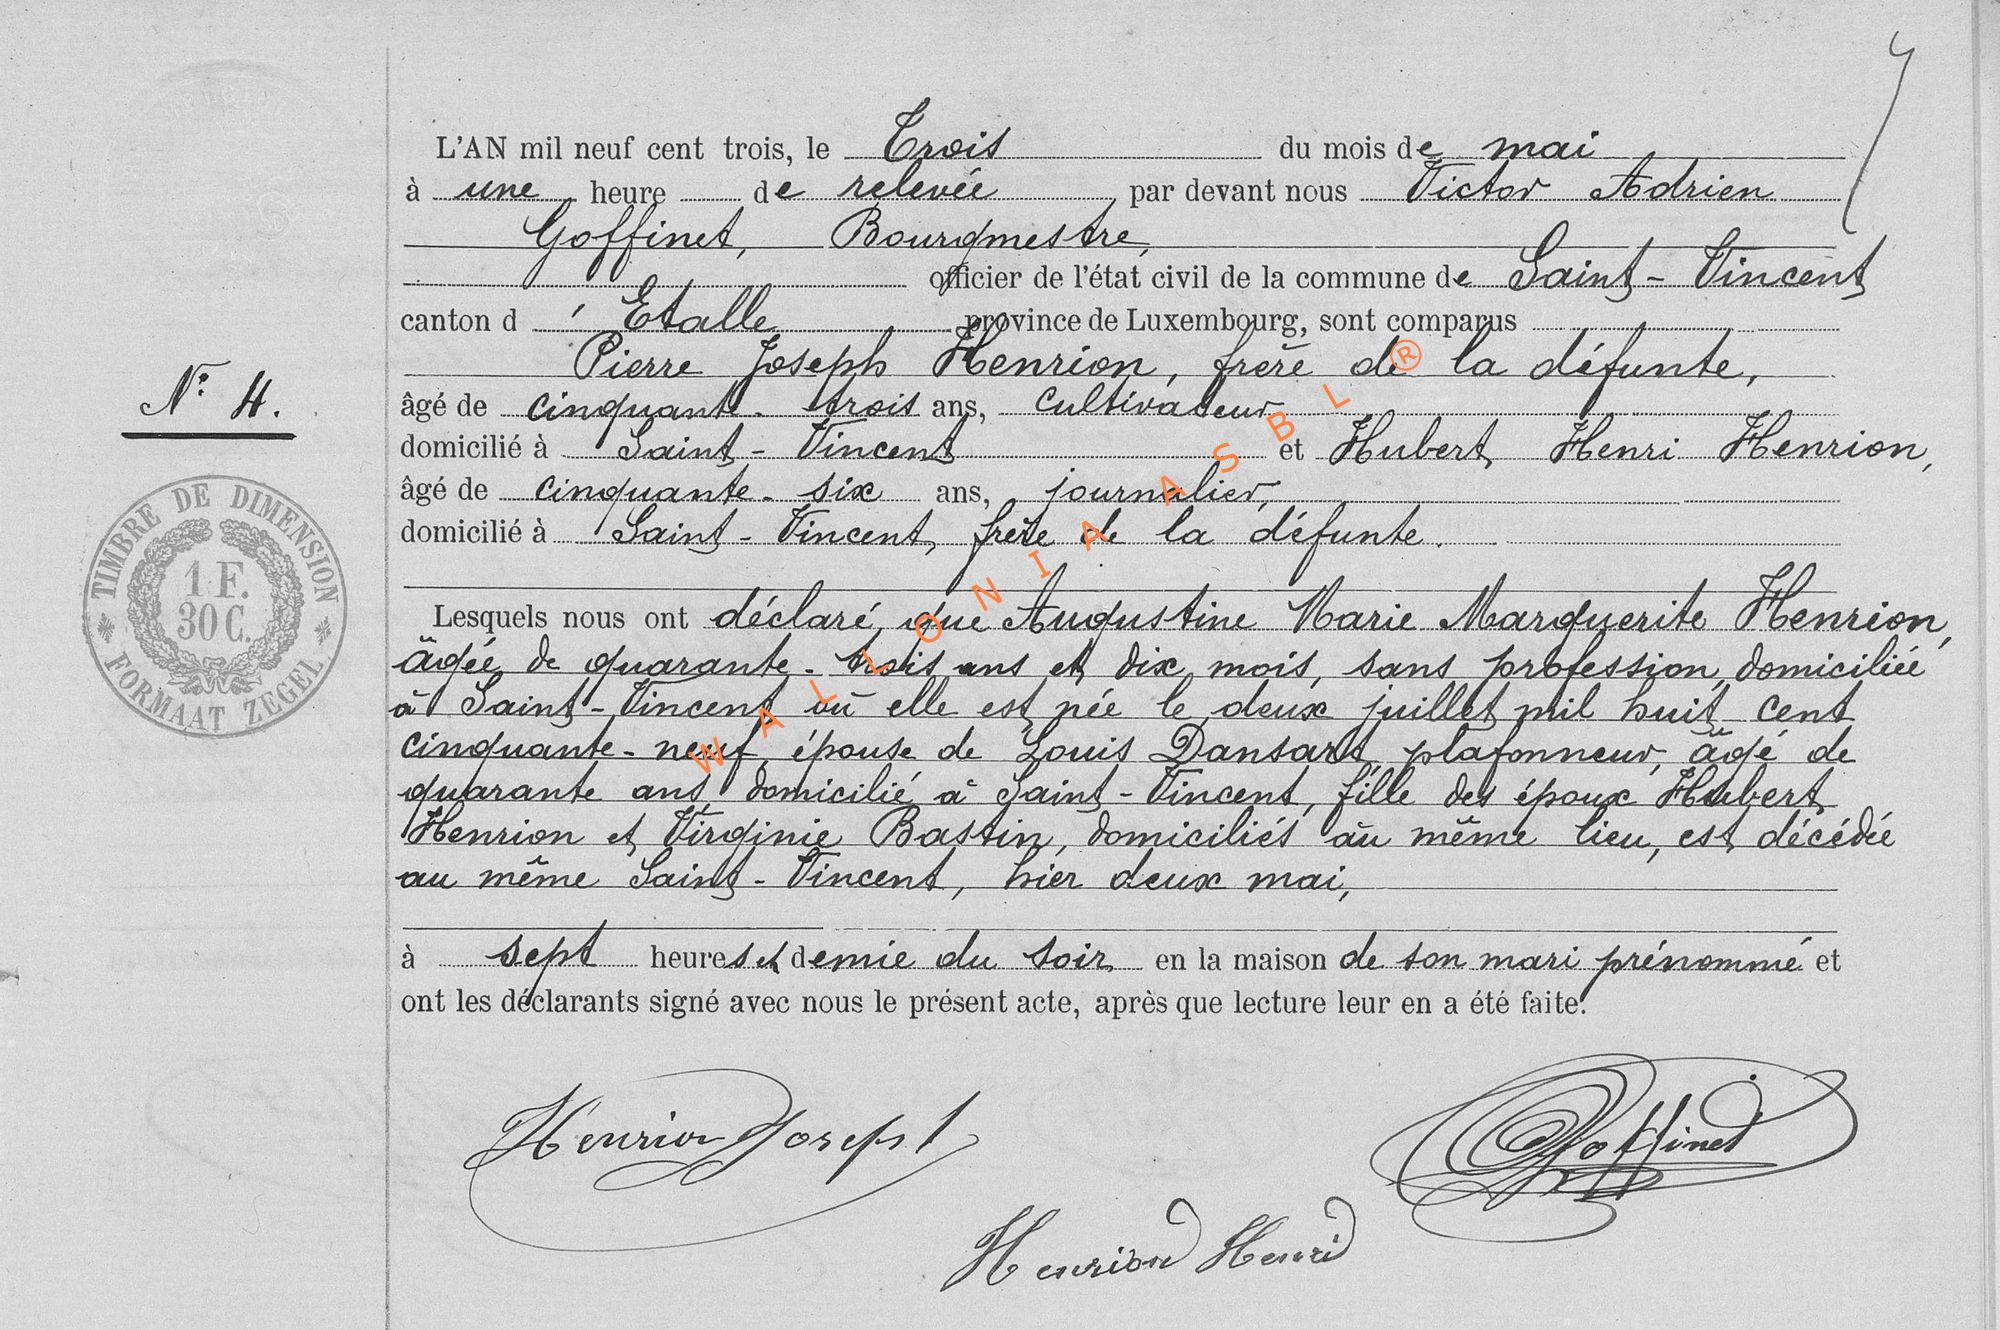 L'AN mil neuf cent trois, le Trois du mois de mai
à une heure de relevée par devant nous Victor Adrien
Goffinet, Bourgmestre,
officier de l'état civil de la commune de Saint-Vincent
canton d'Etalle province de Luxembourg, sont comparus
Pierre Joseph Henrion, frère de la défunte,
N° 4.
âgé de cinquante-trois ans, cultivateur
domicilié à Saint-Vincent et Hubert Henri Henrion,
âgé de cinquante-six ans, journalier,
domicilié à Saint-Vincent, frère de la défunte.
TIMBRE DE DIMENSION
1 F.
30 C.
FORMAAT ZEGEL
Lesquels nous ont déclaré que Augustine Marie Marguerite Henrion,
âgée de quarante-trois ans et dix mois, sans profession, domiciliée
à Saint-Vincent où elle est née le deux juillet mil huit cent
cinquante-neuf, épouse de Louis Dansart, plafonneur, âgé de
quarante ans, domicilié à Saint-Vincent, fille des époux Hubert
Henrion et Virginie Bastin, domiciliés au même lieu, est décédée
au même Saint-Vincent, hier deux mai,
à sept heures et demie du soir en la maison de son mari prénommé et
ont les déclarants signé avec nous le présent acte, après que lecture leur en a été faite.
Henrion Joseph
Goffinet
Henrion Henri
WALLONIA ASBL ®